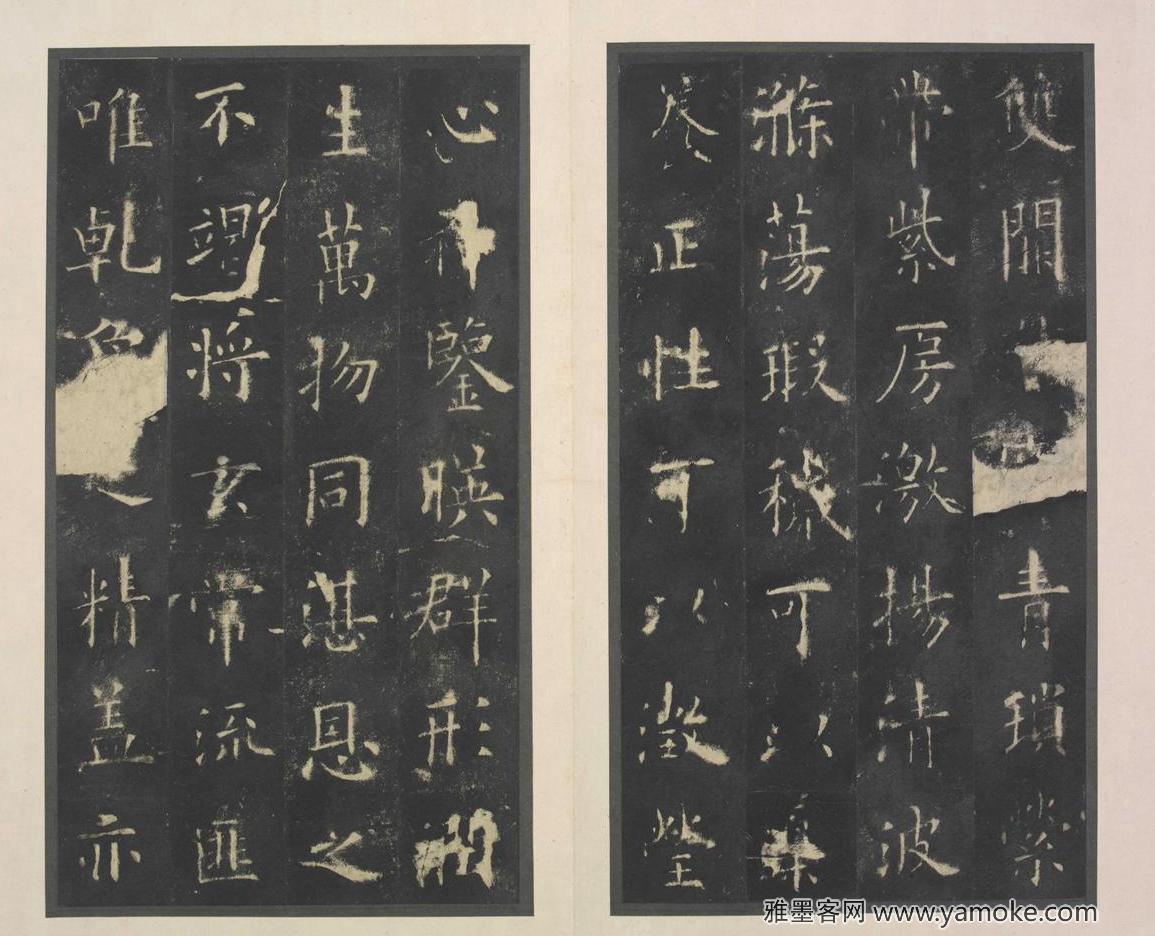 雙闕青瑣縈
帶紫房激揚清波
滌蕩瑕穢可以導
養正性可以澂瑩
心神鑒暎群形潤
生萬物同湛恩之
不竭將玄常流匪
唯乾精盖亦
雅墨客网 www.yamoke.com